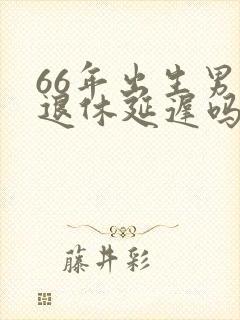 66年出生男
退休延遲吗
藤井彩